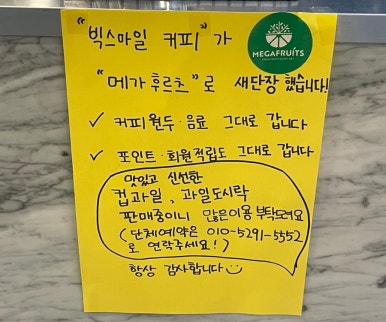 "빅스마일 커피"가
MEGAFRUITS
"메가 후르츠"로 새단장 했습니다!
✓ 커피원두·음료 그대로 갑니다
✓ 포인트·회원적립도 그대로 갑니다
맛있고 신선한
컵과일, 과일도시락
판매중이니 많은이용 부탁드려요
(단체예약은 010-5291-5552
로 연락주세요!)
항상 감사합니다